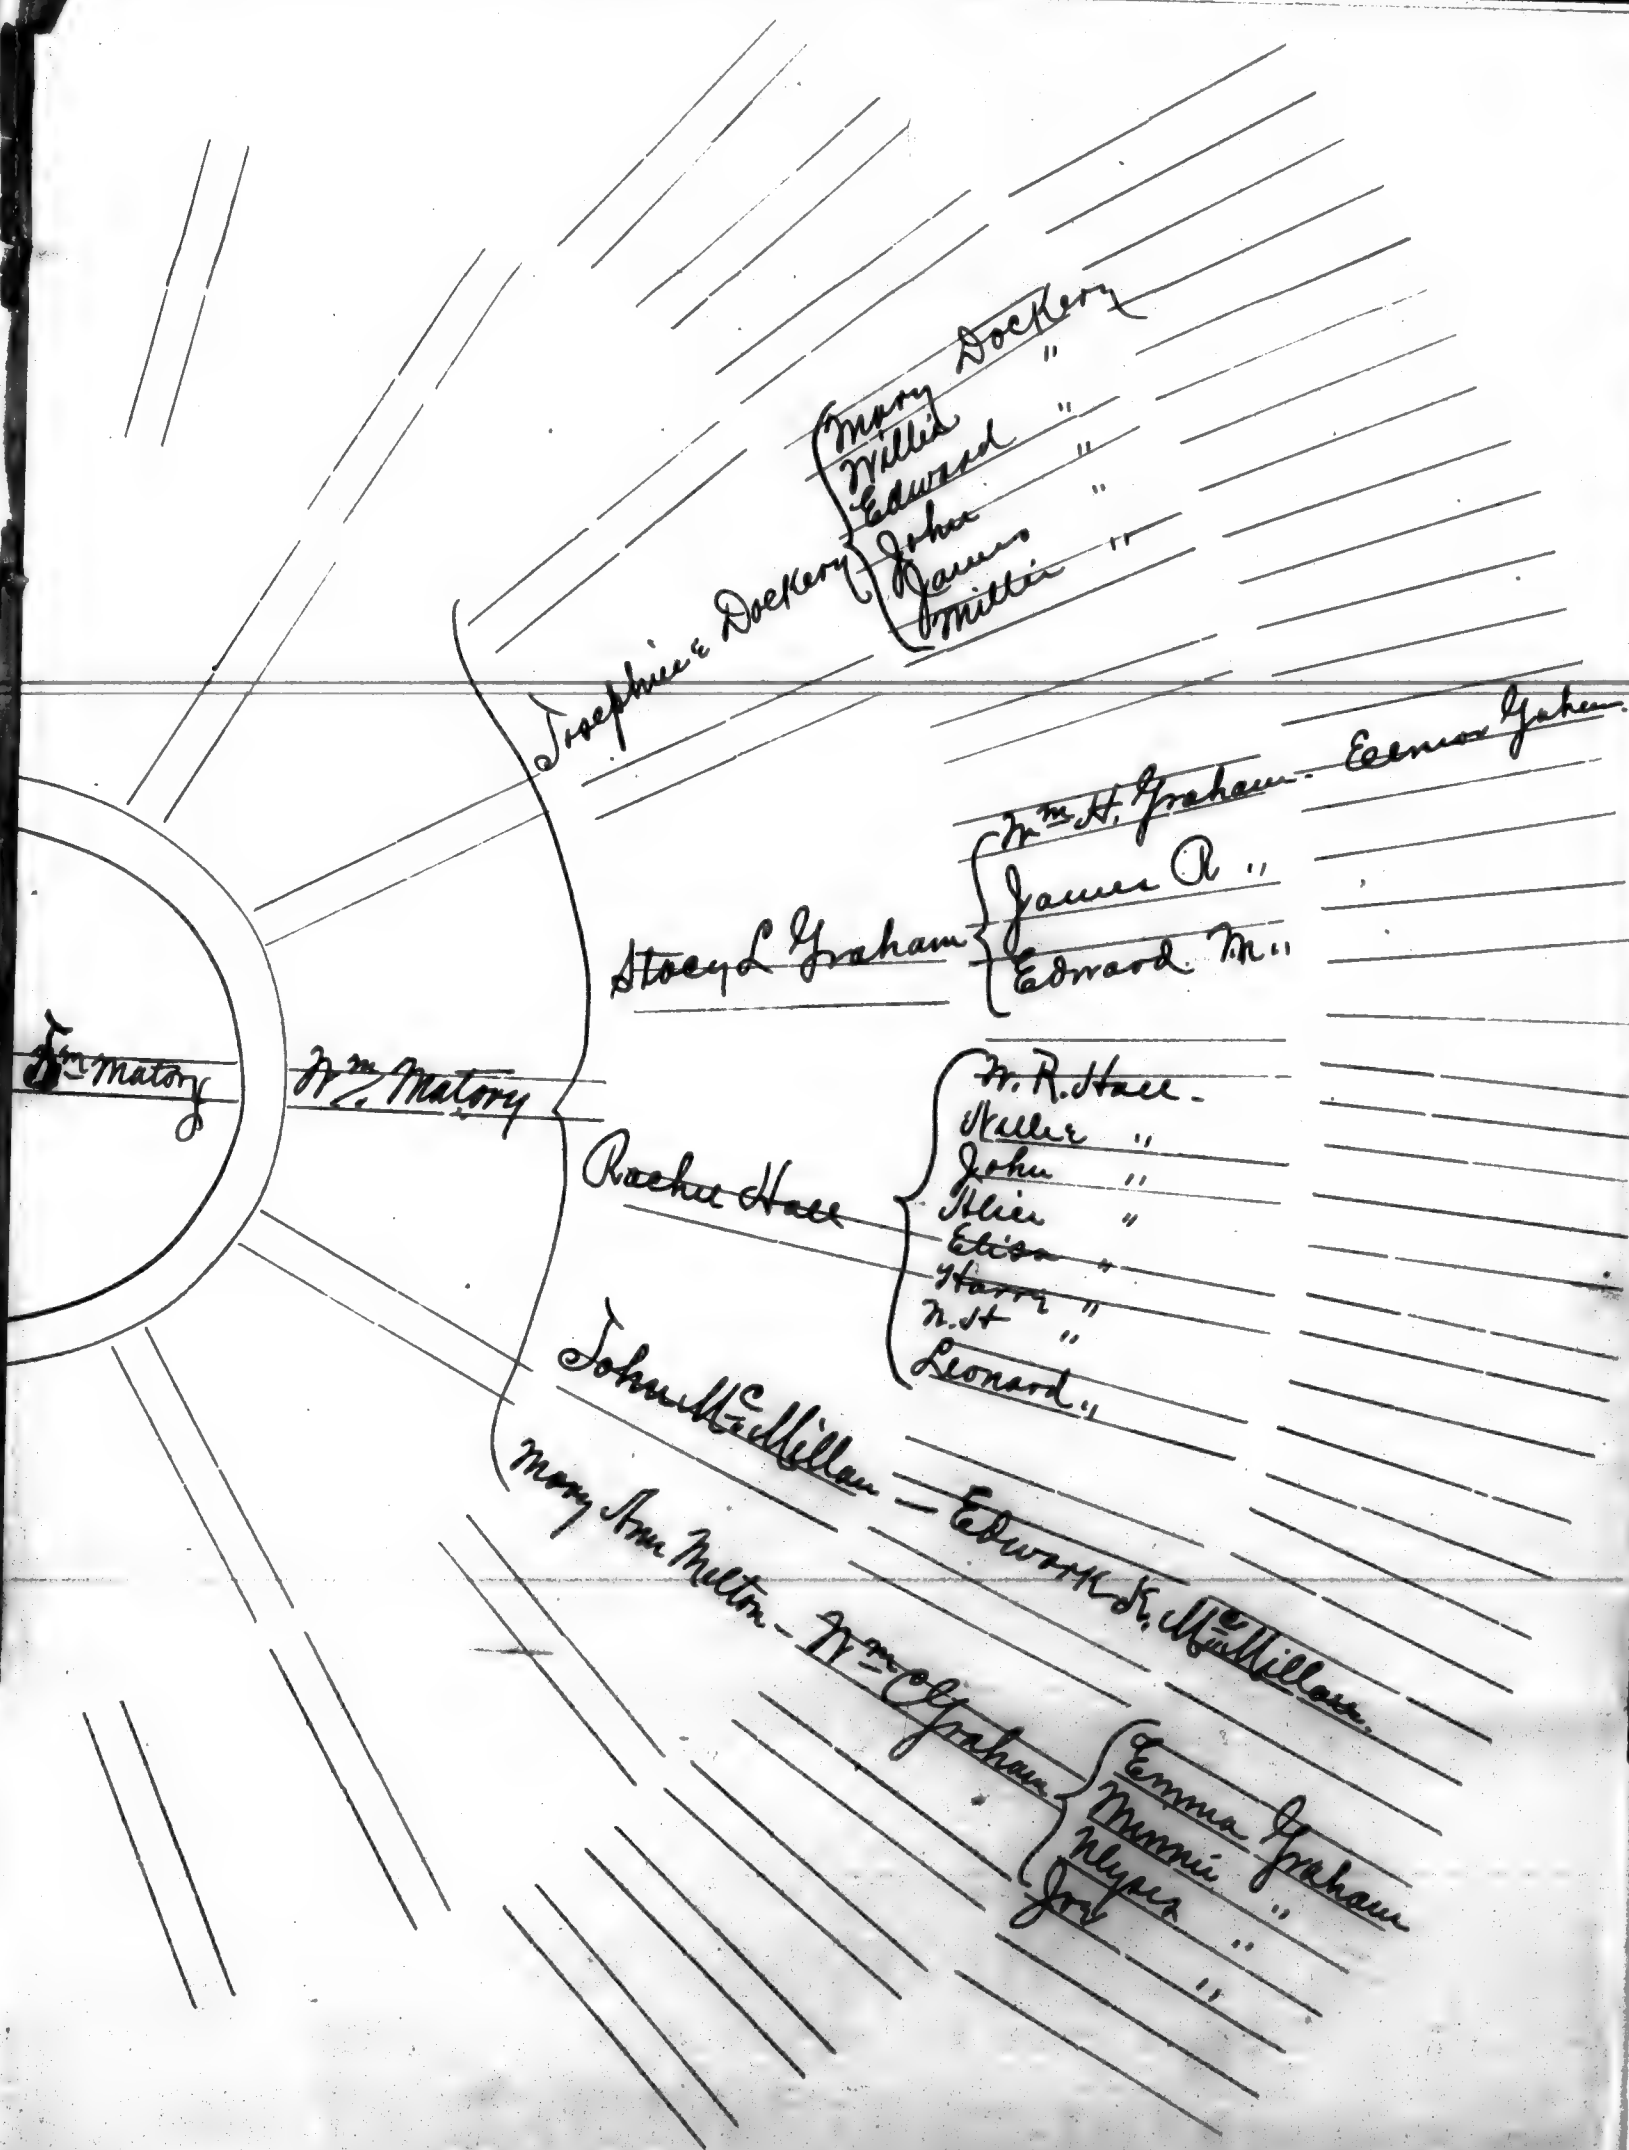 Wm Matory
Wm. Matory
Josephine Dockery
Mary Dockery
Willie "
Edward "
John "
James "
Millie "
Stacy L Graham
Wm H. Graham -
James R "
Edward M "
Rachel Hall
W. R. Hall -
Willie "
John "
Alice "
Eliza "
Harry "
N. H "
Leonard "
John McMillan - Edward K. McMillan.
Mary Ann Melton - Wm C Graham
Emma Graham
Minnie "
Ulyses "
Joe "